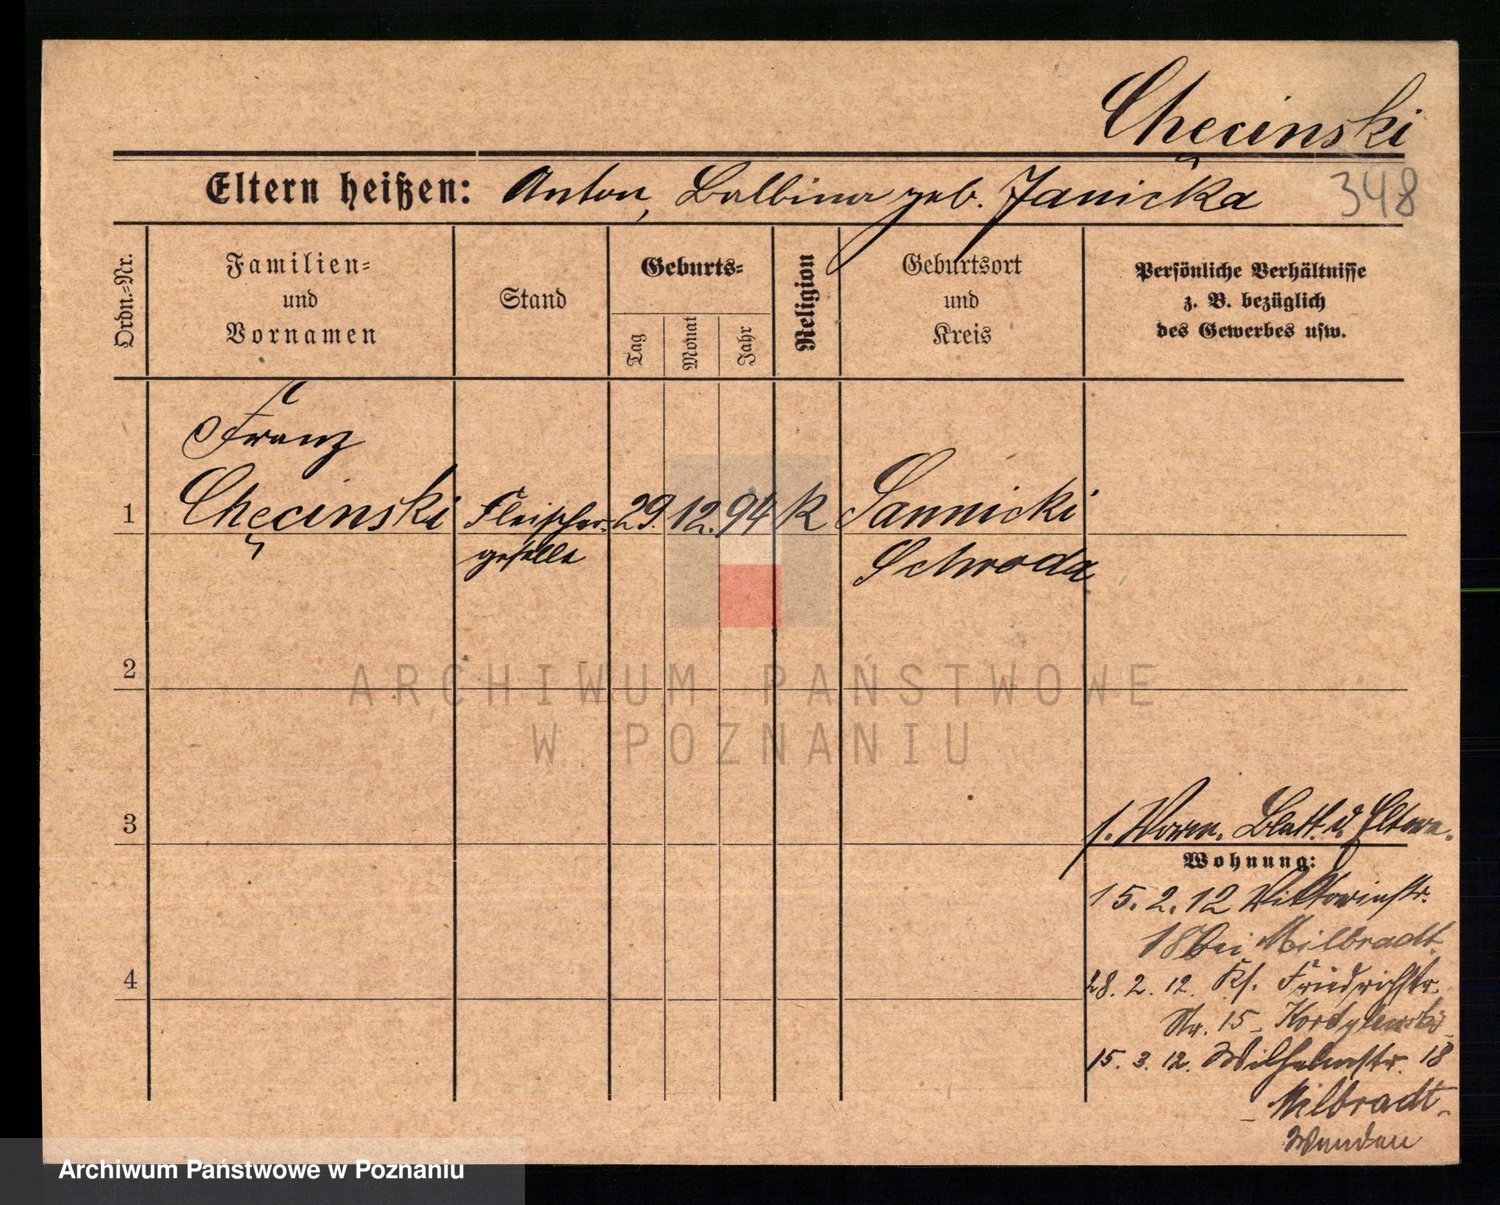 Chęcinski
Eltern heißen: Anton, Balbina geb. Janicka
348
Ordn.=Nr.
Familien=
und
Vornamen
Stand
Geburts=
Tag
Monat
Jahr
Religion
Geburtsort
und
Kreis
Persönliche Verhältnisse
z. B. bezüglich
des Gewerbes usw.
Franz
1 Chęcinski Fleischer- 29. 12. 94 K Sannicki
geselle Schroda
2
ARCHIWUM PAŃSTWOWE
W POZNANIU
3
Blatt d. Eltern.
Wohnung:
15. 2. 12 Viktoriastr.
18 bei Milbradt
4
28. 2. 12. Ks. Friedrichstr.
Nr. 15 - Kordylewski
15. 3. 12. Wilhelmstr. 18
- Milbradt -
Wenden
Archiwum Państwowe w Poznaniu